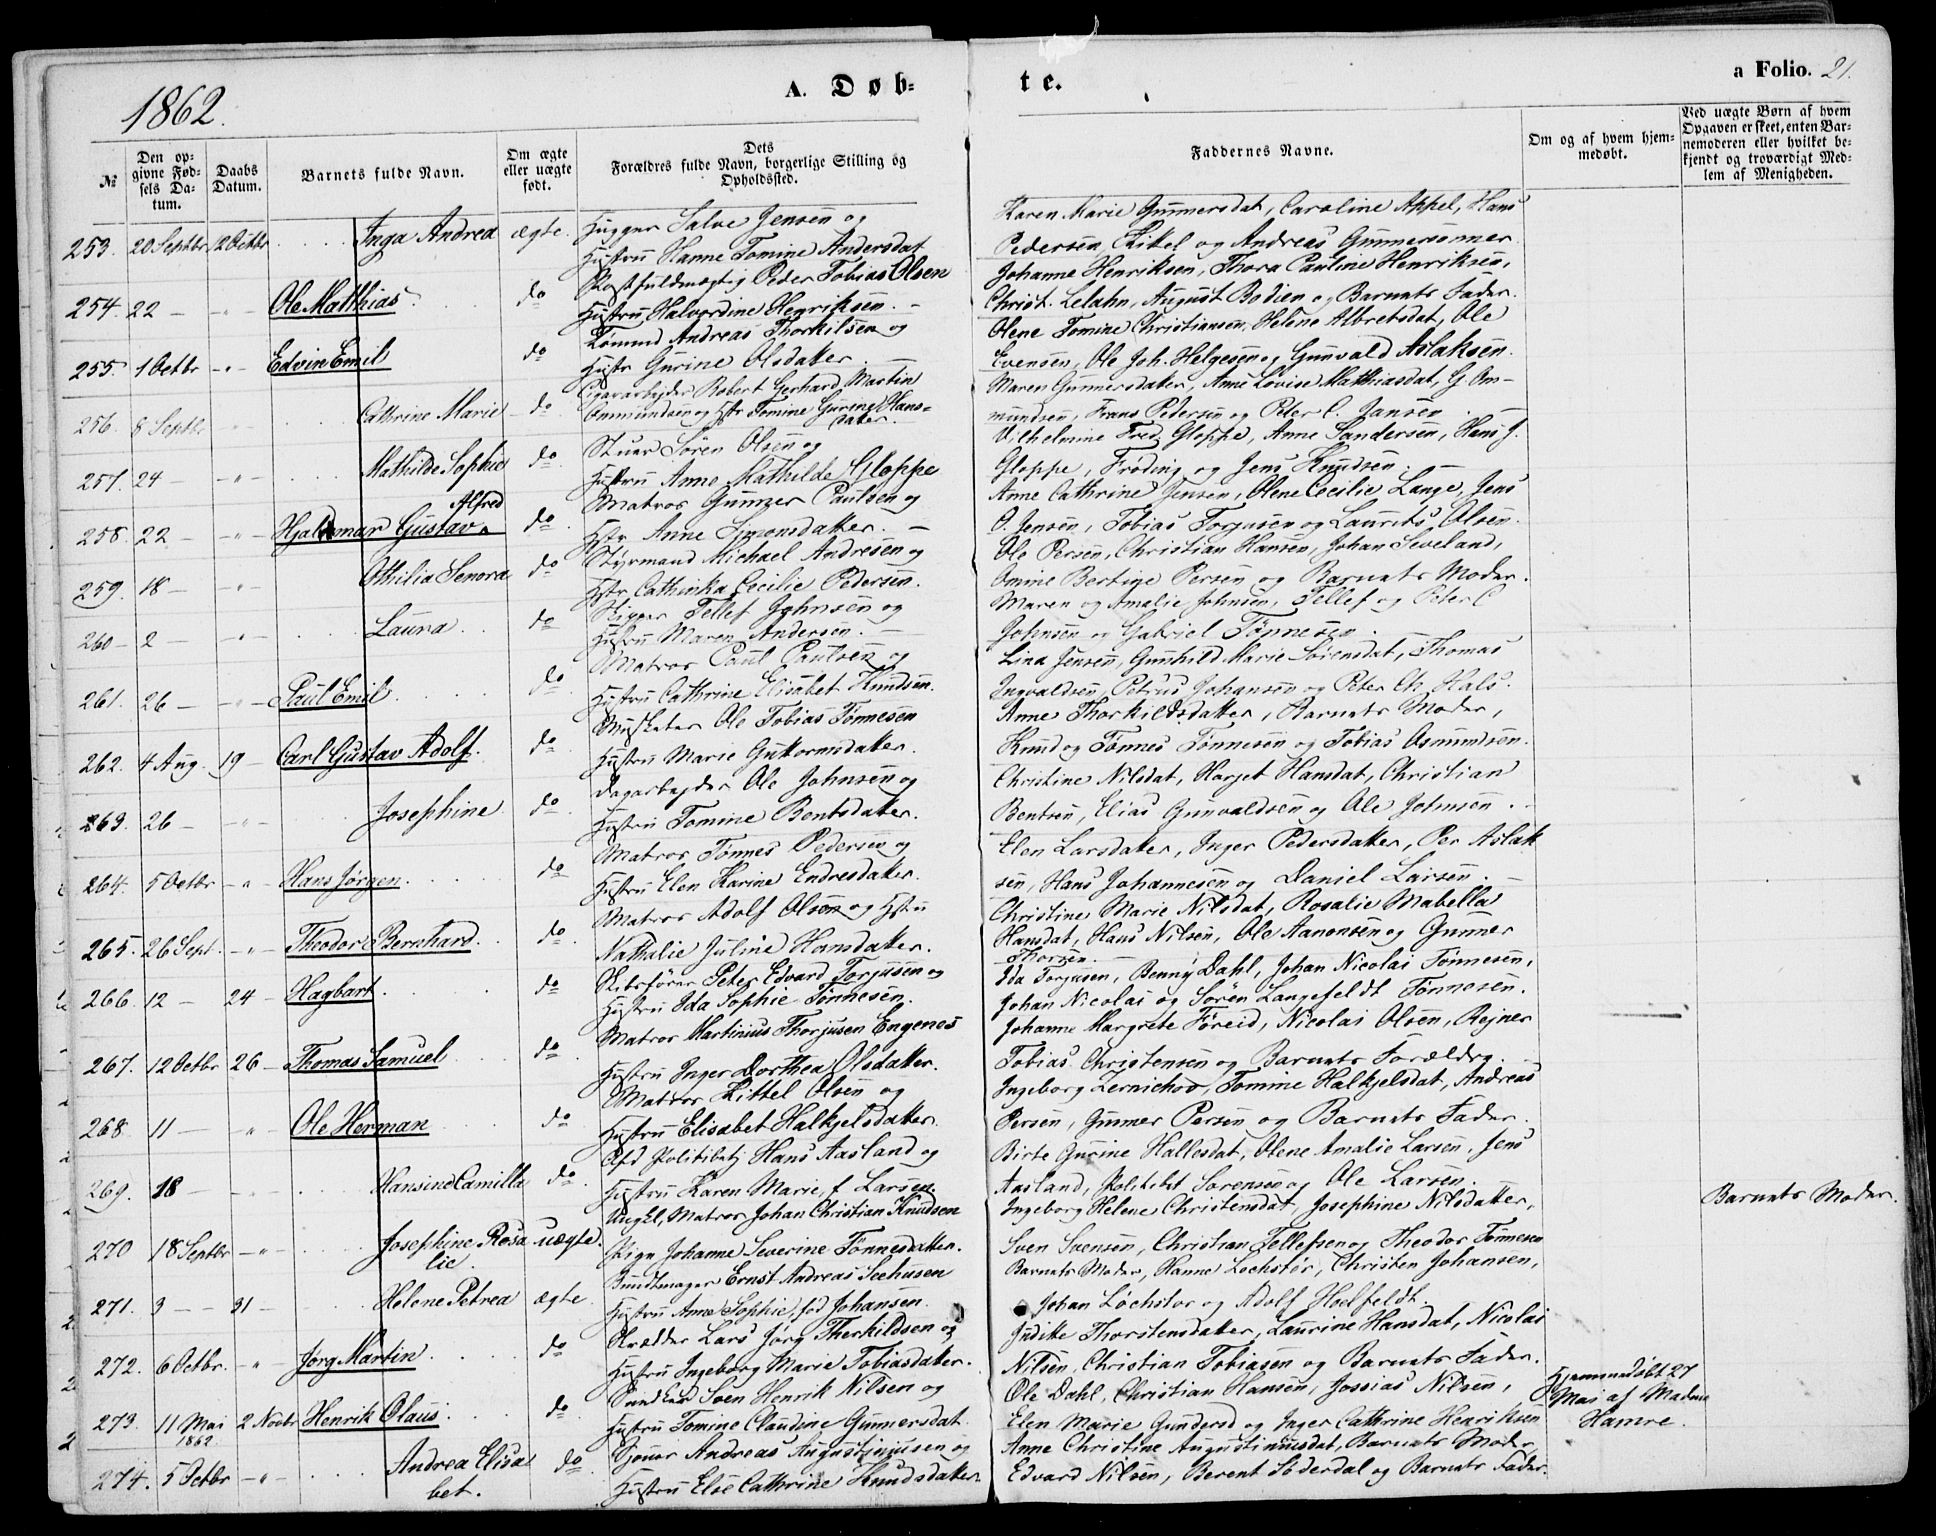 1862.
A. Døb-
te.
a Folio. 21.
№
Den op-
givne Fød-
sels Da-
tum.
Daabs
Datum.
Barnets fulde Navn.
Om ægte
eller uægte
født.
Dets
Forældres fulde Navn, borgerlige Stilling og
Opholdssted.
Faddernes Navne.
Om og af hvem hjem-
medøbt.
Ved uægte Børn af hvem
Opgaven er skeet, enten Bar-
nemoderen eller hvilket be-
kjendt og troværdigt Med-
lem af Menigheden.
253. 20 Septbr 12 Octbr Inga Andrea ægte. Hugger Salve Jensen og
Hustru Hanne Tomine Andersdat
Karen Marie Gunnersdat, Caroline Appel, Hans
Pedersen, Kikel og Andreas Gunnersønner
254. 22 — -"- Ole Matthias. do Postfuldmægtig Peder Tobias Olsen
Hustru Halvordine Henriksen. —
Johanne Henriksen, Thora Pauline Henriksen,
Christ. Lelahn, August Bodien og Barnets Fader.
255. 1 Octbr -"- Edvin Emil do Tømmd Andreas Thorkilsen og
Hustr Gurine Olsdatter. —
Olene Tomine Christiansen, Helene Albretsdat, Ole
Evensen, Ole Joh. Helgesen og Gunvald Aslaksen.
256. 8 Septbr -"- Cathrine Marie do Cigararbejder Robert Gerhard Martin
Ommundsen og Hstr Tomine Gurine Hans-
datter.
Maren Gunnersdatter, Anne Lovise Matthiasdat, G. Om-
mundsen, Frans Pedersen og Peter C. Jansen —
257. 24 -"- Mathilde Sophie do Stuer Sören Olsen og
Hustru Anne Mathilde Gloppe
Vilhelmine Fred. Gloppe, Anne Sandersen, Hans J.
Gloppe, Fröding og Jens Knudsen. —
258. 22 — -"- Hjalmar Gustav Alfred do Matros Gunner Paulsen og
Hstr Anne Simonsdatter. —
Anne Cathrine Jensen, Olene Cecilie Lange, Jens
O. Jensen, Tobias Torjusen og Laurits Olsen.
259. 18 — -"- Othilia Senora do Styrmand Michael Andresen og
Hstr Cathinka Cecilie Pedersen.
Ole Persen, Christian Hansen, Johan Seveland,
Omine Bertine Persen og Barnets Moder.
260 — 2 — -"- Laura. do Skipper Tellef Johnsen og
Hustru Maren Andersen. —
Maren og Amalie Johnsen, Tellef og Peter C
Johnsen og Gabriel Tönnesen.
261. 26 — -"- Paul Emil. do Matros Paul Paulsen og
Hustru Cathrine Elisabet Knudsen.
Lina Jensen, Gunhild Marie Soiensdat, Thomas
Ingvaldsen, Petrus Johansen og Peter Chr. Hals.
262. 4 Aug. 19 — Carl Gustav Adolf. do Musketer Ole Tobias Tönnesen
Hustru Marie Gutormsdatter.
Anne Thorkildsdatter, Barnets Moder,
Knud og Tönnes Tönnesen og Tobias Osmundsen.
263. 26 — -"- Josephine do Dagarbejder Ole Johnsen og
Hustru Tomine Bentsdatter.
Christine Nilsdat, Harjet Hansdat, Christian
Bentsen, Elias Gunvaldsen og Ole Johnsen.
264. 5 Octbr -"- Hans Jørgen. do Matros Tönnes Pedersen og
Hustru Elen Karine Endresdatter.
Elen Larsdatter, Inger Pedersdatter, Per Aslak
sen, Hans Johannesen og Daniel Larsen. —
265. 26 Sept. -"- Theodor Bernhard. do Matros Adolf Olsen og Hstru
Nathalie Juline Hansdatter.
Christine Marie Nilsdat, Rosalie Mabella
Hansdat, Hans Nilsen, Ole Aanonsen og Gunner
Thorsen. —
266. 12 — 24 — Hagbart do Skibsfører Peter Edvard Torjusen og
Hustru Ida Sophie Tönnesen.
Ida Torjusen, Benny Dahl, Johan Nicolai Tönnesen,
Johan Nicolai og Sören Langefeldt Tönnesen.
267. 12 Octbr 26 — Thomas Samuel do Matros Martinius Thorjusen Engenes
Hustru Inger Dorthea Olsdatter.
Johanne Margrete Föreid, Nicolai Olsen, Rejner
Tobias Christensen og Barnets Forældre. —
268. 11 — " — Ole Herman do Matros Kittel Olsen og
Hustru Elisabet Halkjelsdatter.
Ingeborg Zernichov, Tomine Halkjelsdat, Andreas
Persen, Gunner Persen og Barnets Fader.
269. 18 — -"- Hansine Camilla do. Afd Politibetj Hans Aasland og
Hustru Karen Marie f. Larsen
Birte Gurine Hallesdat, Olene Amalie Larsen, Jens
Aasland, Politibet Sorensen og Ole Larsen.
270 18 Septbr -"- Josephine Rosa uægte.
lie.
Ungkl, Matros Johan Christian Knudsen
Pige Johanne Severine Tönnesdatter.
Ingeborg Helene Christensdat, Josephine Nilsdatter,
Sven Svensen, Christian Tellefsen og Theodor Tönnesen
Barnets Moder.
271. 3 — — 31 — Helene Petrea ægte Bundtmager Ernst Andreas Seehusen
Hustru Anne Sophie, fød Johansen.
Barnets Moder, Hanne Lochstör, Christen Johansen,
Johan Löchstor og Adolf Hoelfeldt.
272. 6 Octbr. -"- Jörg Martin. do Skrædder Lars Jörg Therkildsen og
Hustru Ingeborg Marie Tobiasdatter.
Juditte Thorstensdatter, Laurine Hansdat, Nicolai
Nilsen, Christian Tobiasen og Barnets Fader.
273. 11 Mai 2 Novbr Henrik Olaus. do
1862
Sven Henrik Nilsen og
Hustru Tomine Claudine Gunnersdat
Ole Dahl, Christian Hansen, Jossias Nilsen,
Elen Marie Gundersd og Inger Cathrine Henriksen
Hjemmedöbt 27
Mai af Madme
Hamre.
274. 5 Octbr -"- Andrea Elisa do
bet.
Sjouer Andreas Augustiniusen og
Hustru Else Cathrine Knudsdatter
Anne Christine Augustiniusdat, Barnets Moder,
Edvard Nilsen, Berent Söderdal og Barnets Fader.